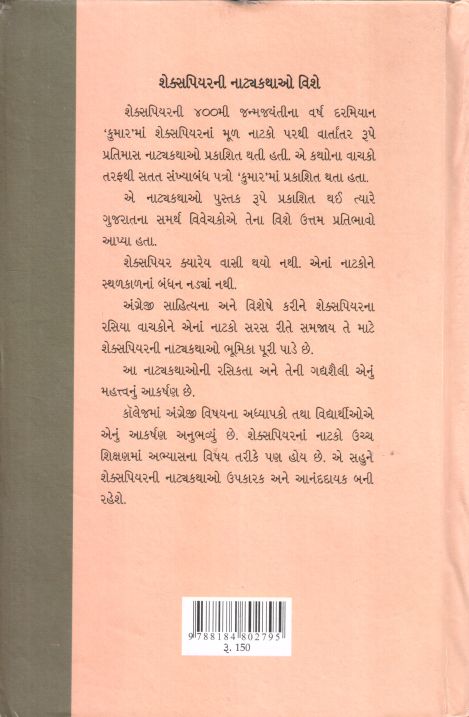 શેક્સપિયરની નાટ્યકથાઓ વિશે
શેક્સપિયરની ૪૦૦મી જન્મજયંતીના વર્ષ દરમિયાન
‘કુમાર’માં શેક્સપિયરનાં મૂળ નાટકો પરથી વાર્તાંતર રૂપે
પ્રતિમાસ નાટ્યકથાઓ પ્રકાશિત થતી હતી. એ કથાોના વાચકો
તરફથી સતત સંખ્યાબંધ પત્રો ‘કુમાર’માં પ્રકાશિત થતા હતા.
એ નાટ્યકથાઓ પુસ્તક રૂપે પ્રકાશિત થઈ ત્યારે
ગુજરાતના સમર્થ વિવેચકોએ તેના વિશે ઉત્તમ પ્રતિભાવો
આપ્યા હતા.
શેક્સપિયર ક્યારેય વાસી થયો નથી. એનાં નાટકોને
સ્થળકાળનાં બંધન નડ્યાં નથી.
અંગ્રેજી સાહિત્યના અને વિશેષે કરીને શેક્સપિયરના
રસિયા વાચકોને એનાં નાટકો સરસ રીતે સમજાય તે માટે
શેક્સપિયરની નાટ્યકથાઓ ભૂમિકા પૂરી પાડે છે.
આ નાટ્યકથાઓની રસિકતા અને તેની ગદ્યશૈલી એનું
મહત્ત્વનું આકર્ષણ છે.
કૉલેજમાં અંગ્રેજી વિષયના અધ્યાપકો તથા વિદ્યાર્થીઓએ
એનું આકર્ષણ અનુભવ્યું છે. શેક્સપિયરનાં નાટકો ઉચ્ચ
શિક્ષણમાં અભ્યાસના વિષય તરીકે પણ હોય છે. એ સહુને
શેક્સપિયરની નાટ્યકથાઓ ઉપકારક અને આનંદદાયક બની
રહેશે.
9 788184 802795
રૂ. 150